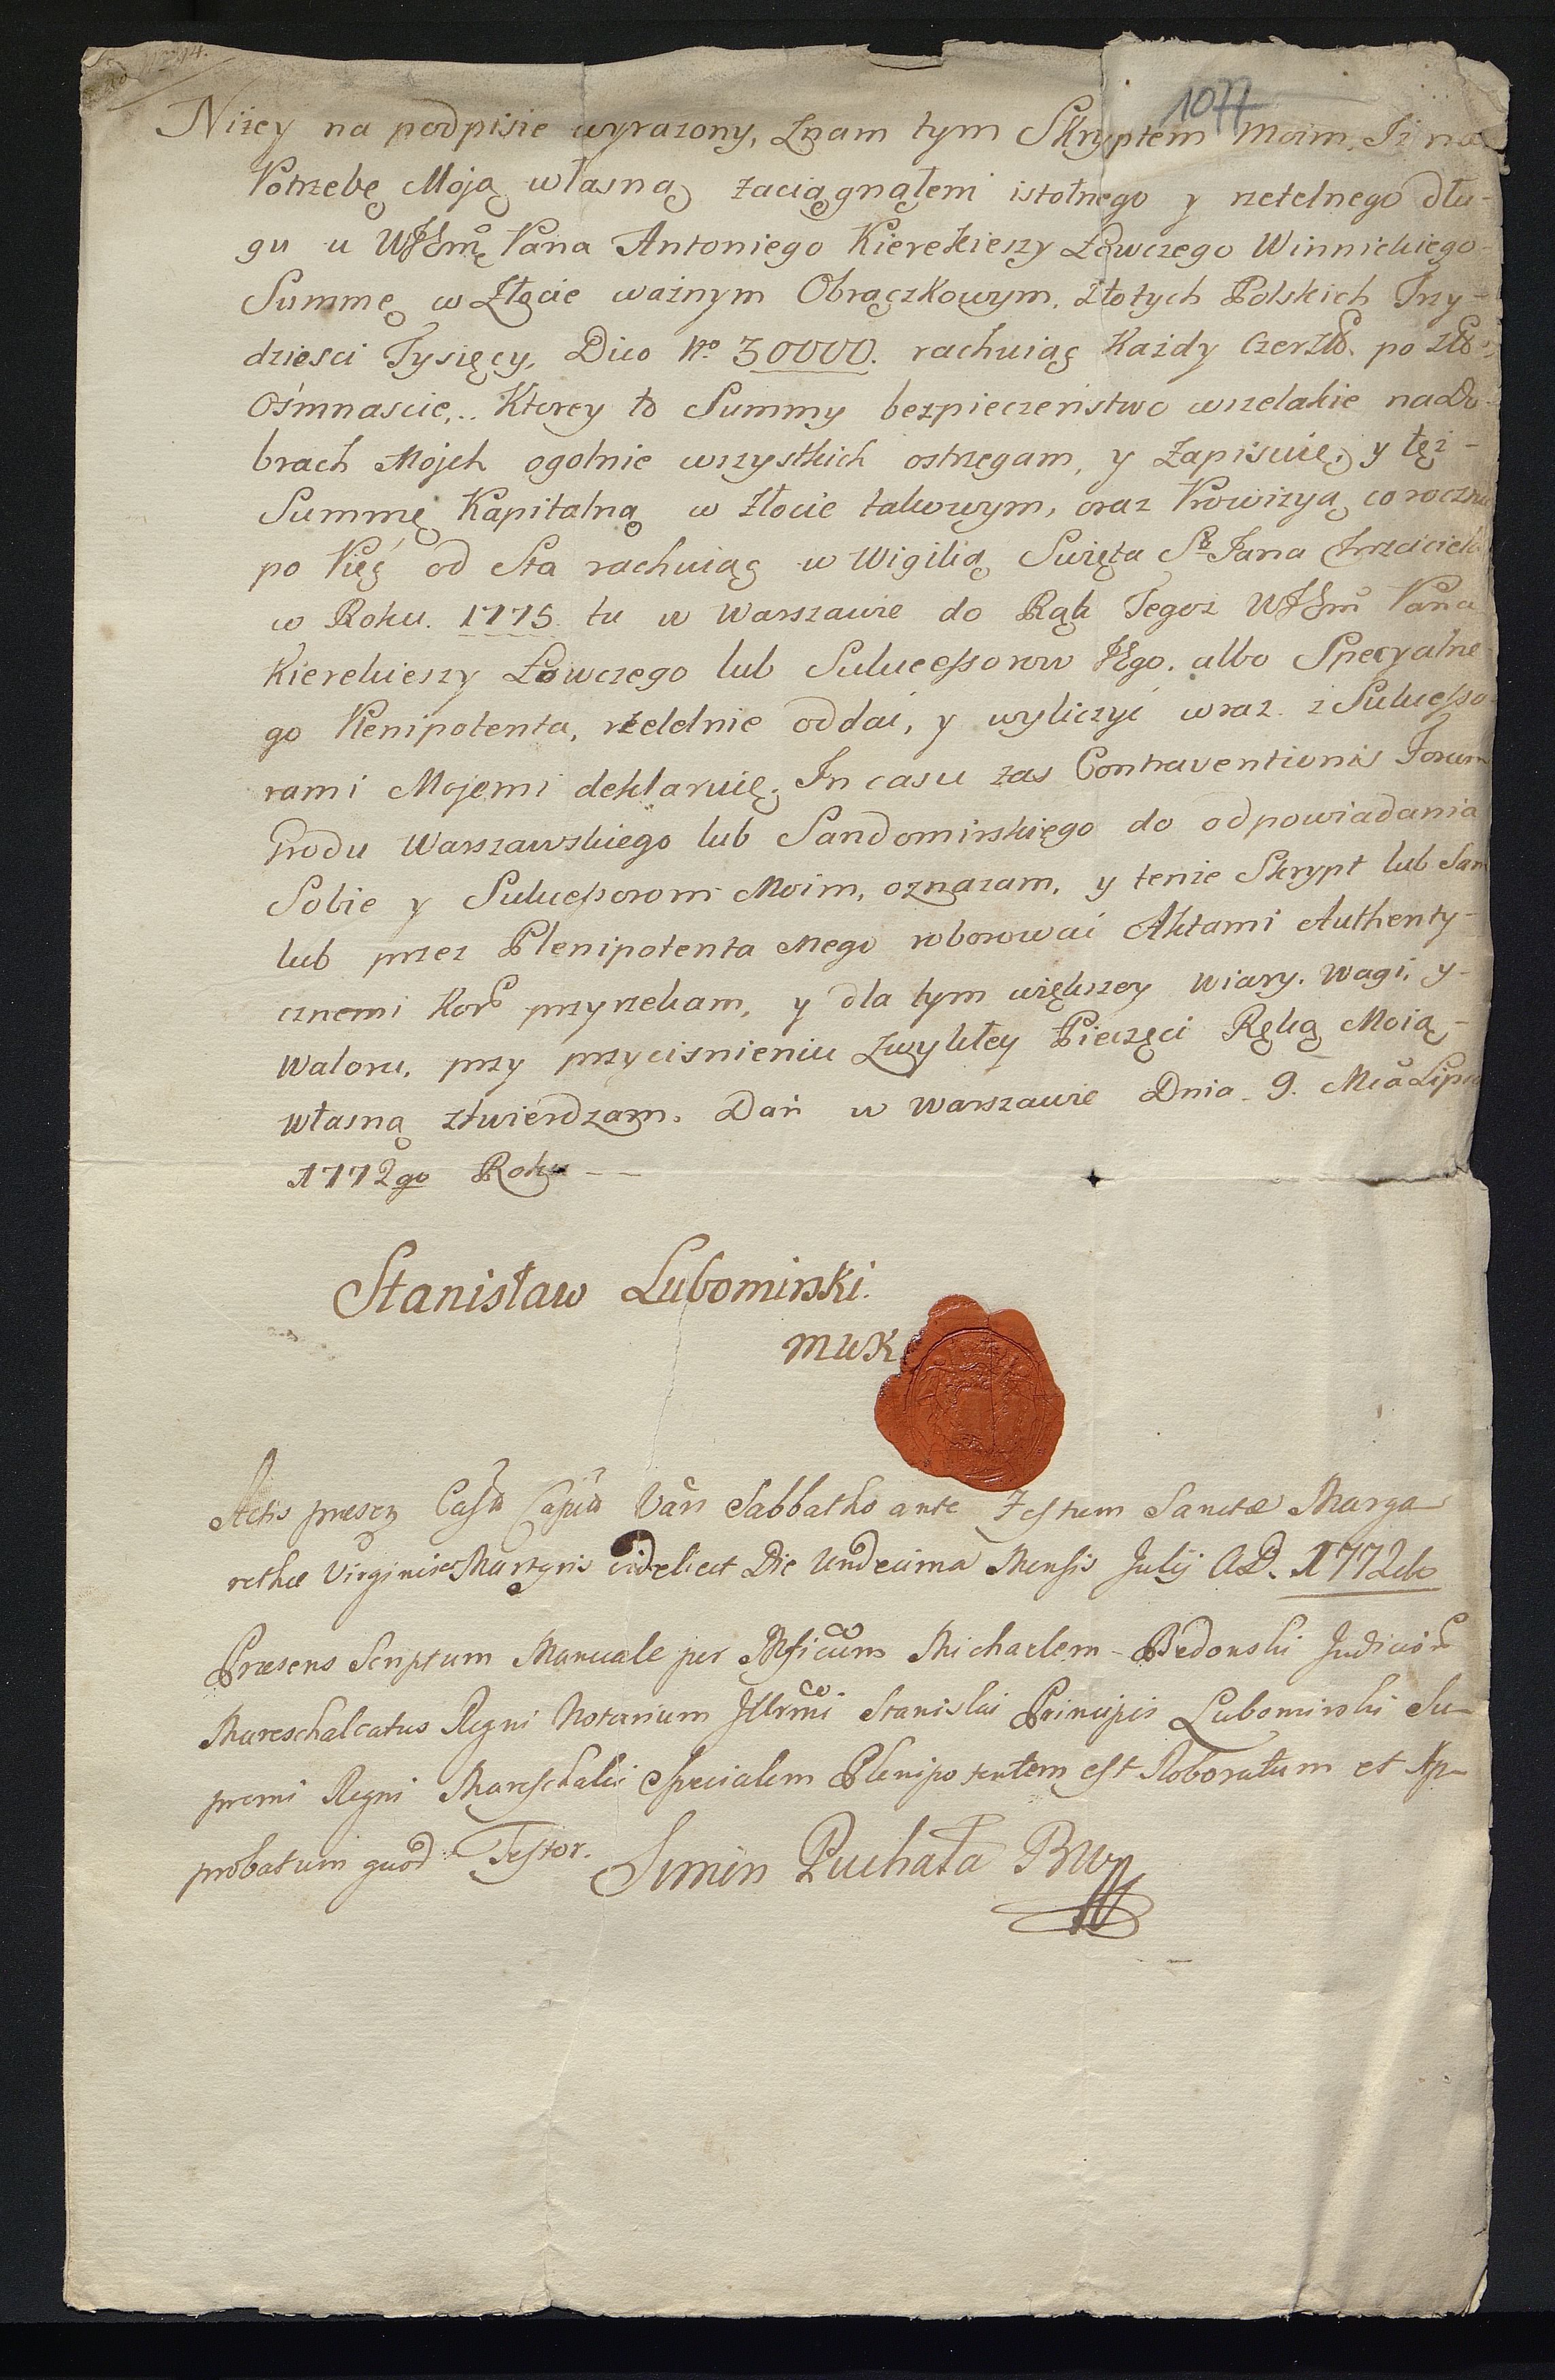 1077
Niżey na podpisie wyrazony, Znam tym Skryptem Moim, Iż na
Potrzebę Moją własną zaciągnąłem istotnego y rzetelnego dłu-
gu u WJPmę Pana Antoniego Kierekieszy Łowczego Winnickiego
Summę w Złocie ważnym Obrączkowym, Złotych Polskich Trzy-
dziesci Tysięcy, Dico No 30000. rachuiąc Każdy CzerZło. po zło
Ośmnascie,.. Ktorey to Summy bezpieczeństwo wszelakie na Do-
brach Mojch ogolnie wszystkich ostrzegam, y Zapisuię, y tęż-
Summę Kapitalną w Złocie takowym, oraz Prowizyą co roczną
po Pięć od Sta rachuiąc w Wigilią Swięta So Jana Chrzciciela
w Roku. 1775 tu w Warszawie do Rąk Tegoż WJPmo Pana
Kierekieszy Łowczego lub Sukcessorow JEgo. albo Specyalne-
go Plenipotenta, rzetelnie oddać, y wyliczyć wraz z Sukcesso-
rami Mojemi deklaruię. In casu zas Contraventionis Forum
Grodu Warszawskiego lub Sandomirskięgo do odpowiadania
Sobie y Sukcessorom Moim, oznazam, y tenże Skrypt lub Sam
lub przez Plenipotenta Mego roborować Aktami Authenty-
cznemi Koro przyrzekam, y dla tym większey wiary. Wagi, y-
Waloru, przy przycisnieniu Zwykłey Pieczęci Ręką Moią-
własną ztwierdzam. Dań w Warszawie Dnia 9. Mca Lipca
1772go Roku
Stanisław Lubomirski.
MWK
Actis præsen Castr Capit Varś Sabbatho ante Festum Sanctæ Marga
rethæ Virginis Martyris videlicet Die Undecima Mensis Julij AD. 1772do
Præsens Scriptum Manuale per Mficum Michaelem Bedonski Judicior
Mareschalcatus Regni Notarium Illrmi Stanislai Principis Lubomirski Su-
premi Regni Mareschalci Specialem Plenipotentem est Roboratum et Ap-
probatum quod Testor. Simon Puchała BW